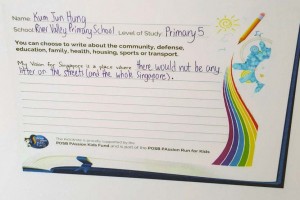 Name: Kum Jun Hung
School: River Valley Primary School Level of Study: Primary 5
You can choose to write about the community, defense,
education, family, health, housing, sports or transport.
My Vision for Singapore is a place where there would not be any
litter on the streets (and the whole Singapore).
POSB PAssion Kids Fund and is part of the POSB PAssion Run for Kids